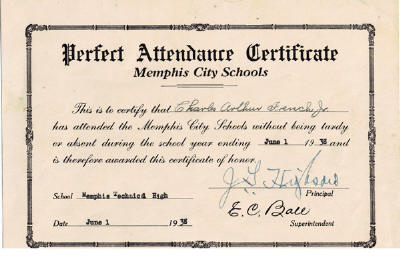 Perfect Attendance Certificate
Memphis City Schools
This is to certify that Charles Arthur French, Jr
has attended the Memphis City Schools without being tardy
or absent during the school year ending June 1 1938 and
is therefore awarded this certificate of honor.
J. L. Highsaw
Principal
School Memphis Technical High
E. C. Ball
Superintendent
Date June 1 1938